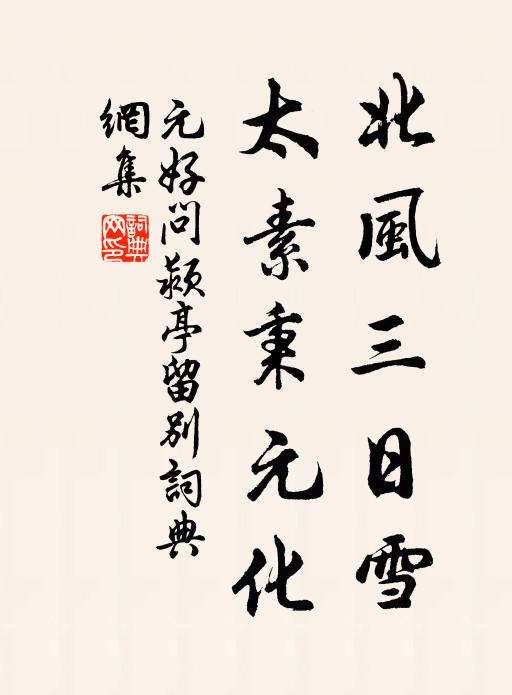 北風三日雪
太素秉元化
元好問潁亭留別詞典
網集
詞典網印